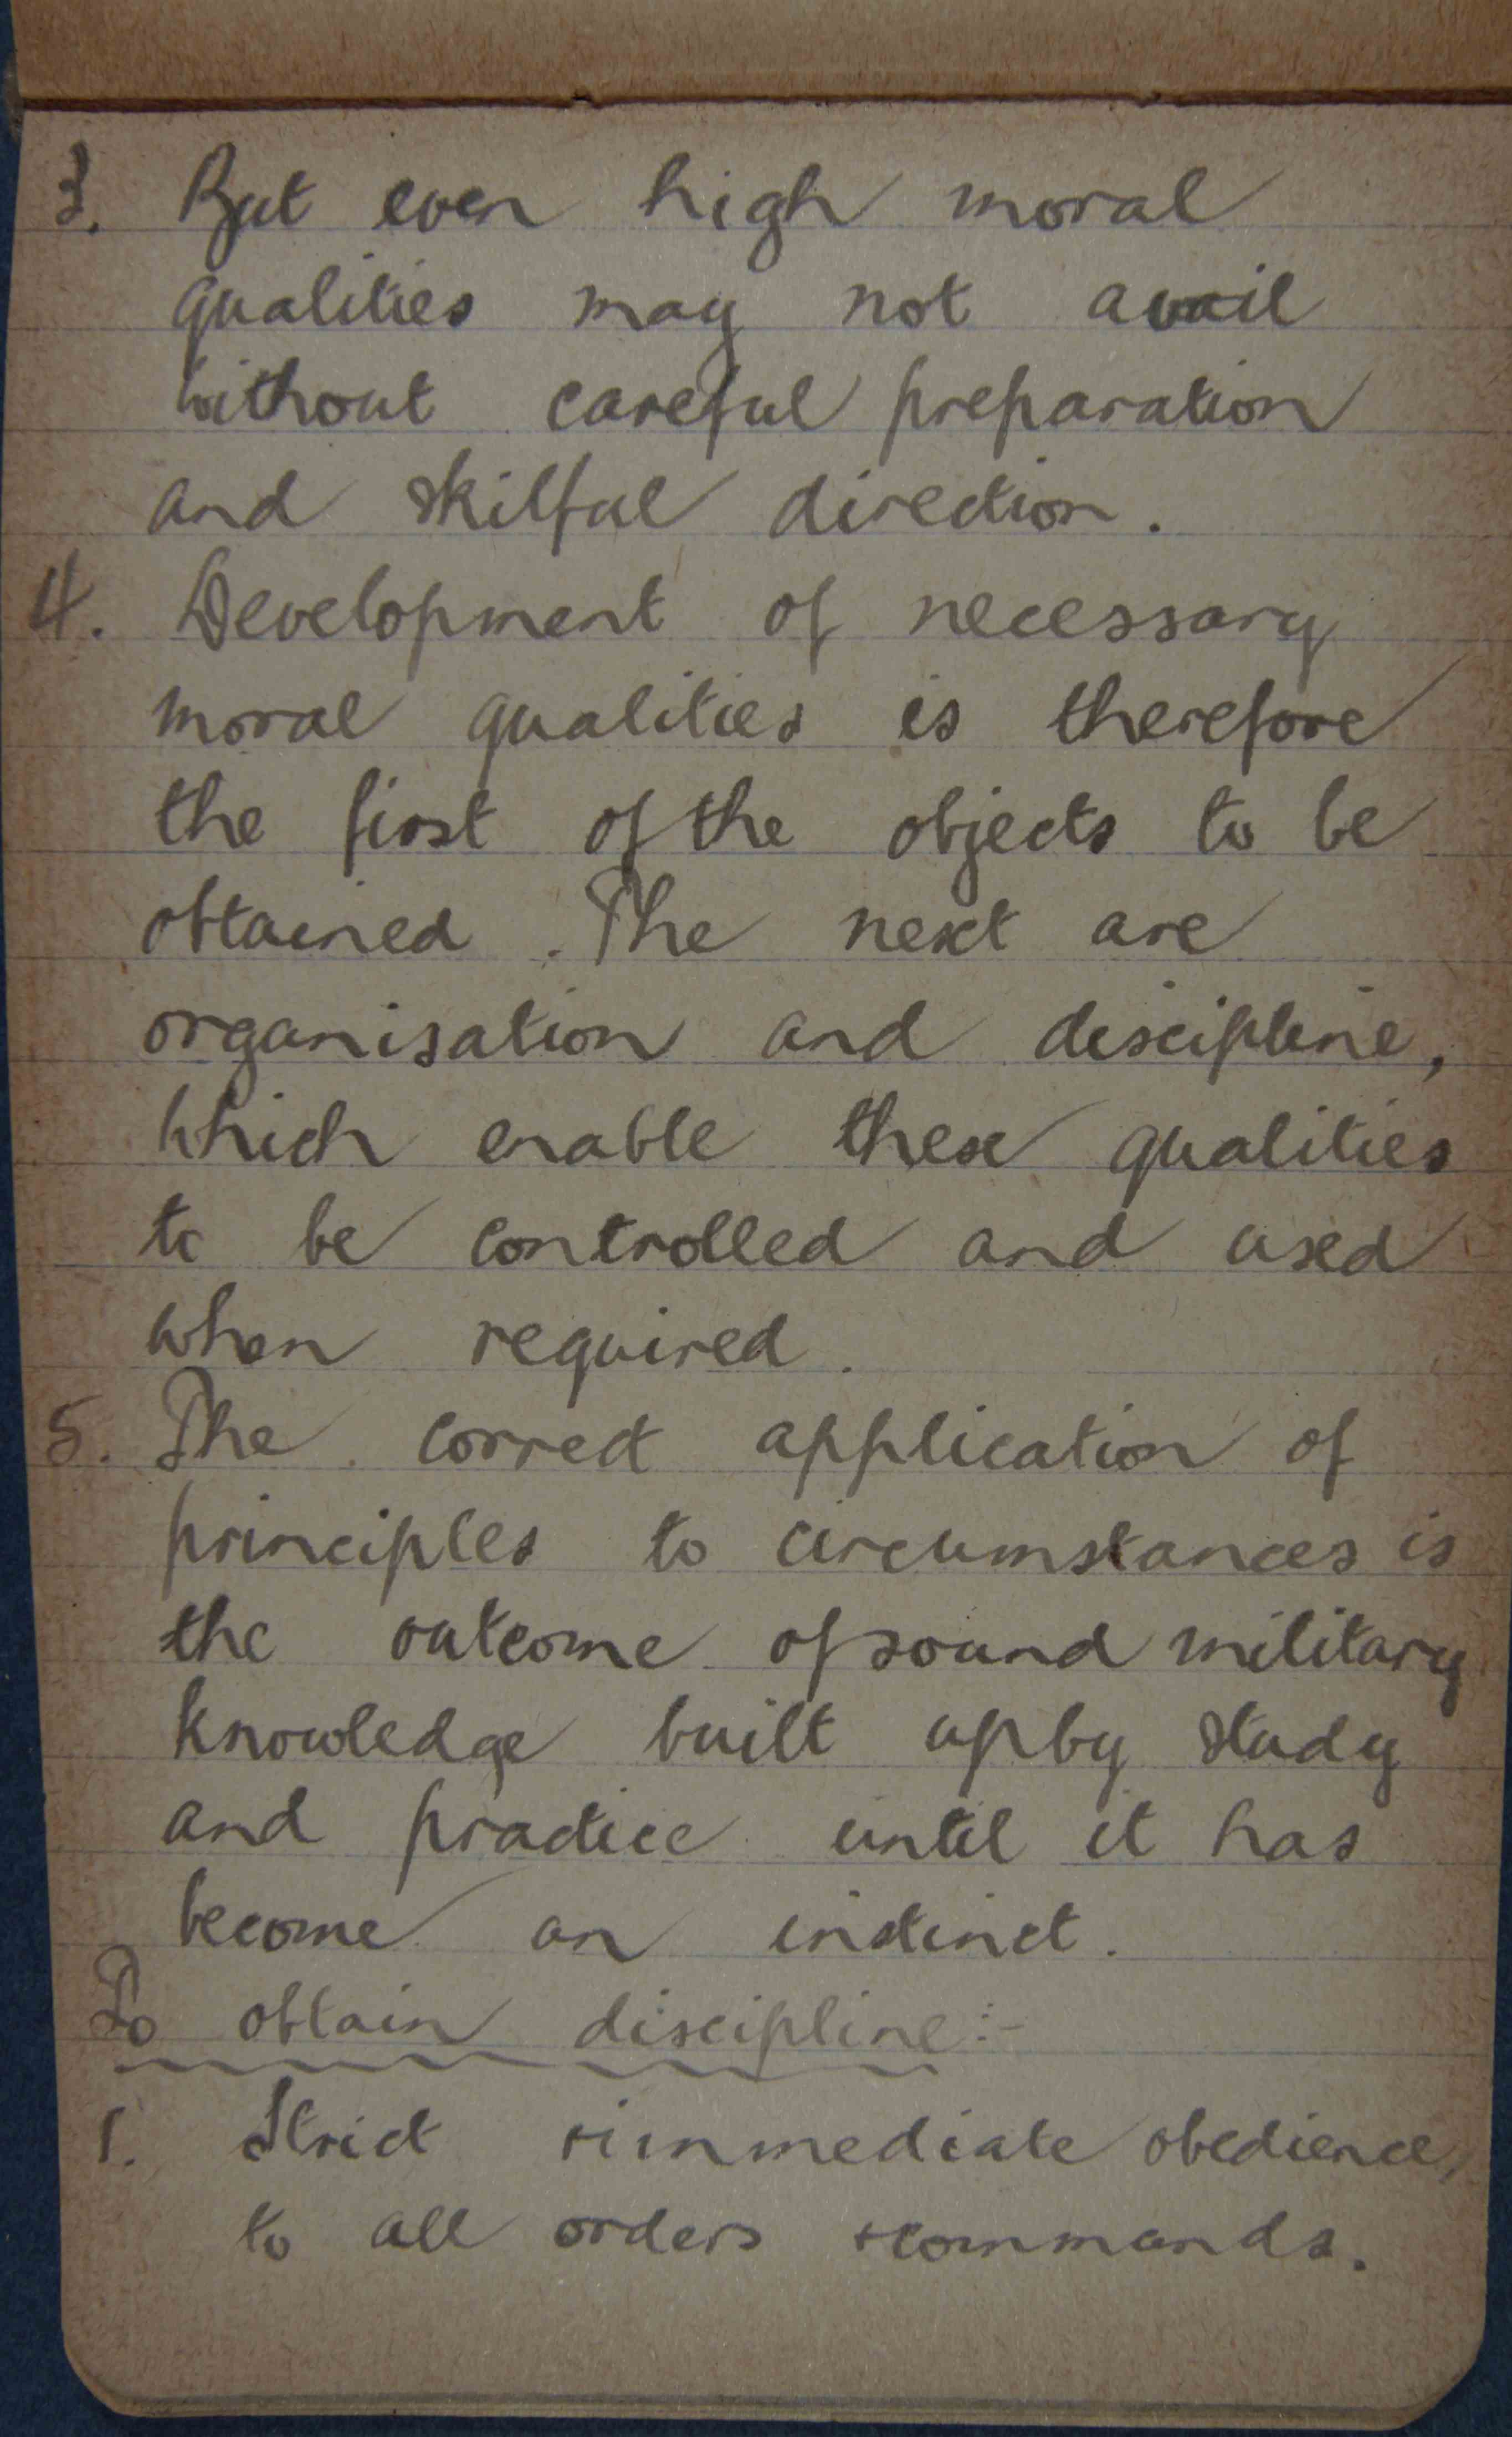 3. But even high moral
qualities may not avail
without careful preparation
and skilful direction.
4. Development of necessary
moral qualities is therefore
the first of the objects to be
obtained. The next are
organisation and discipline,
which enable these qualities
to be controlled and used
when required.
5. The correct application of
principles to circumstances is
the outcome of sound military
knowledge built up by study
and practice until it has
become an instinct.
To obtain discipline:-
1. Strict + immediate obedience,
to all orders + commands.